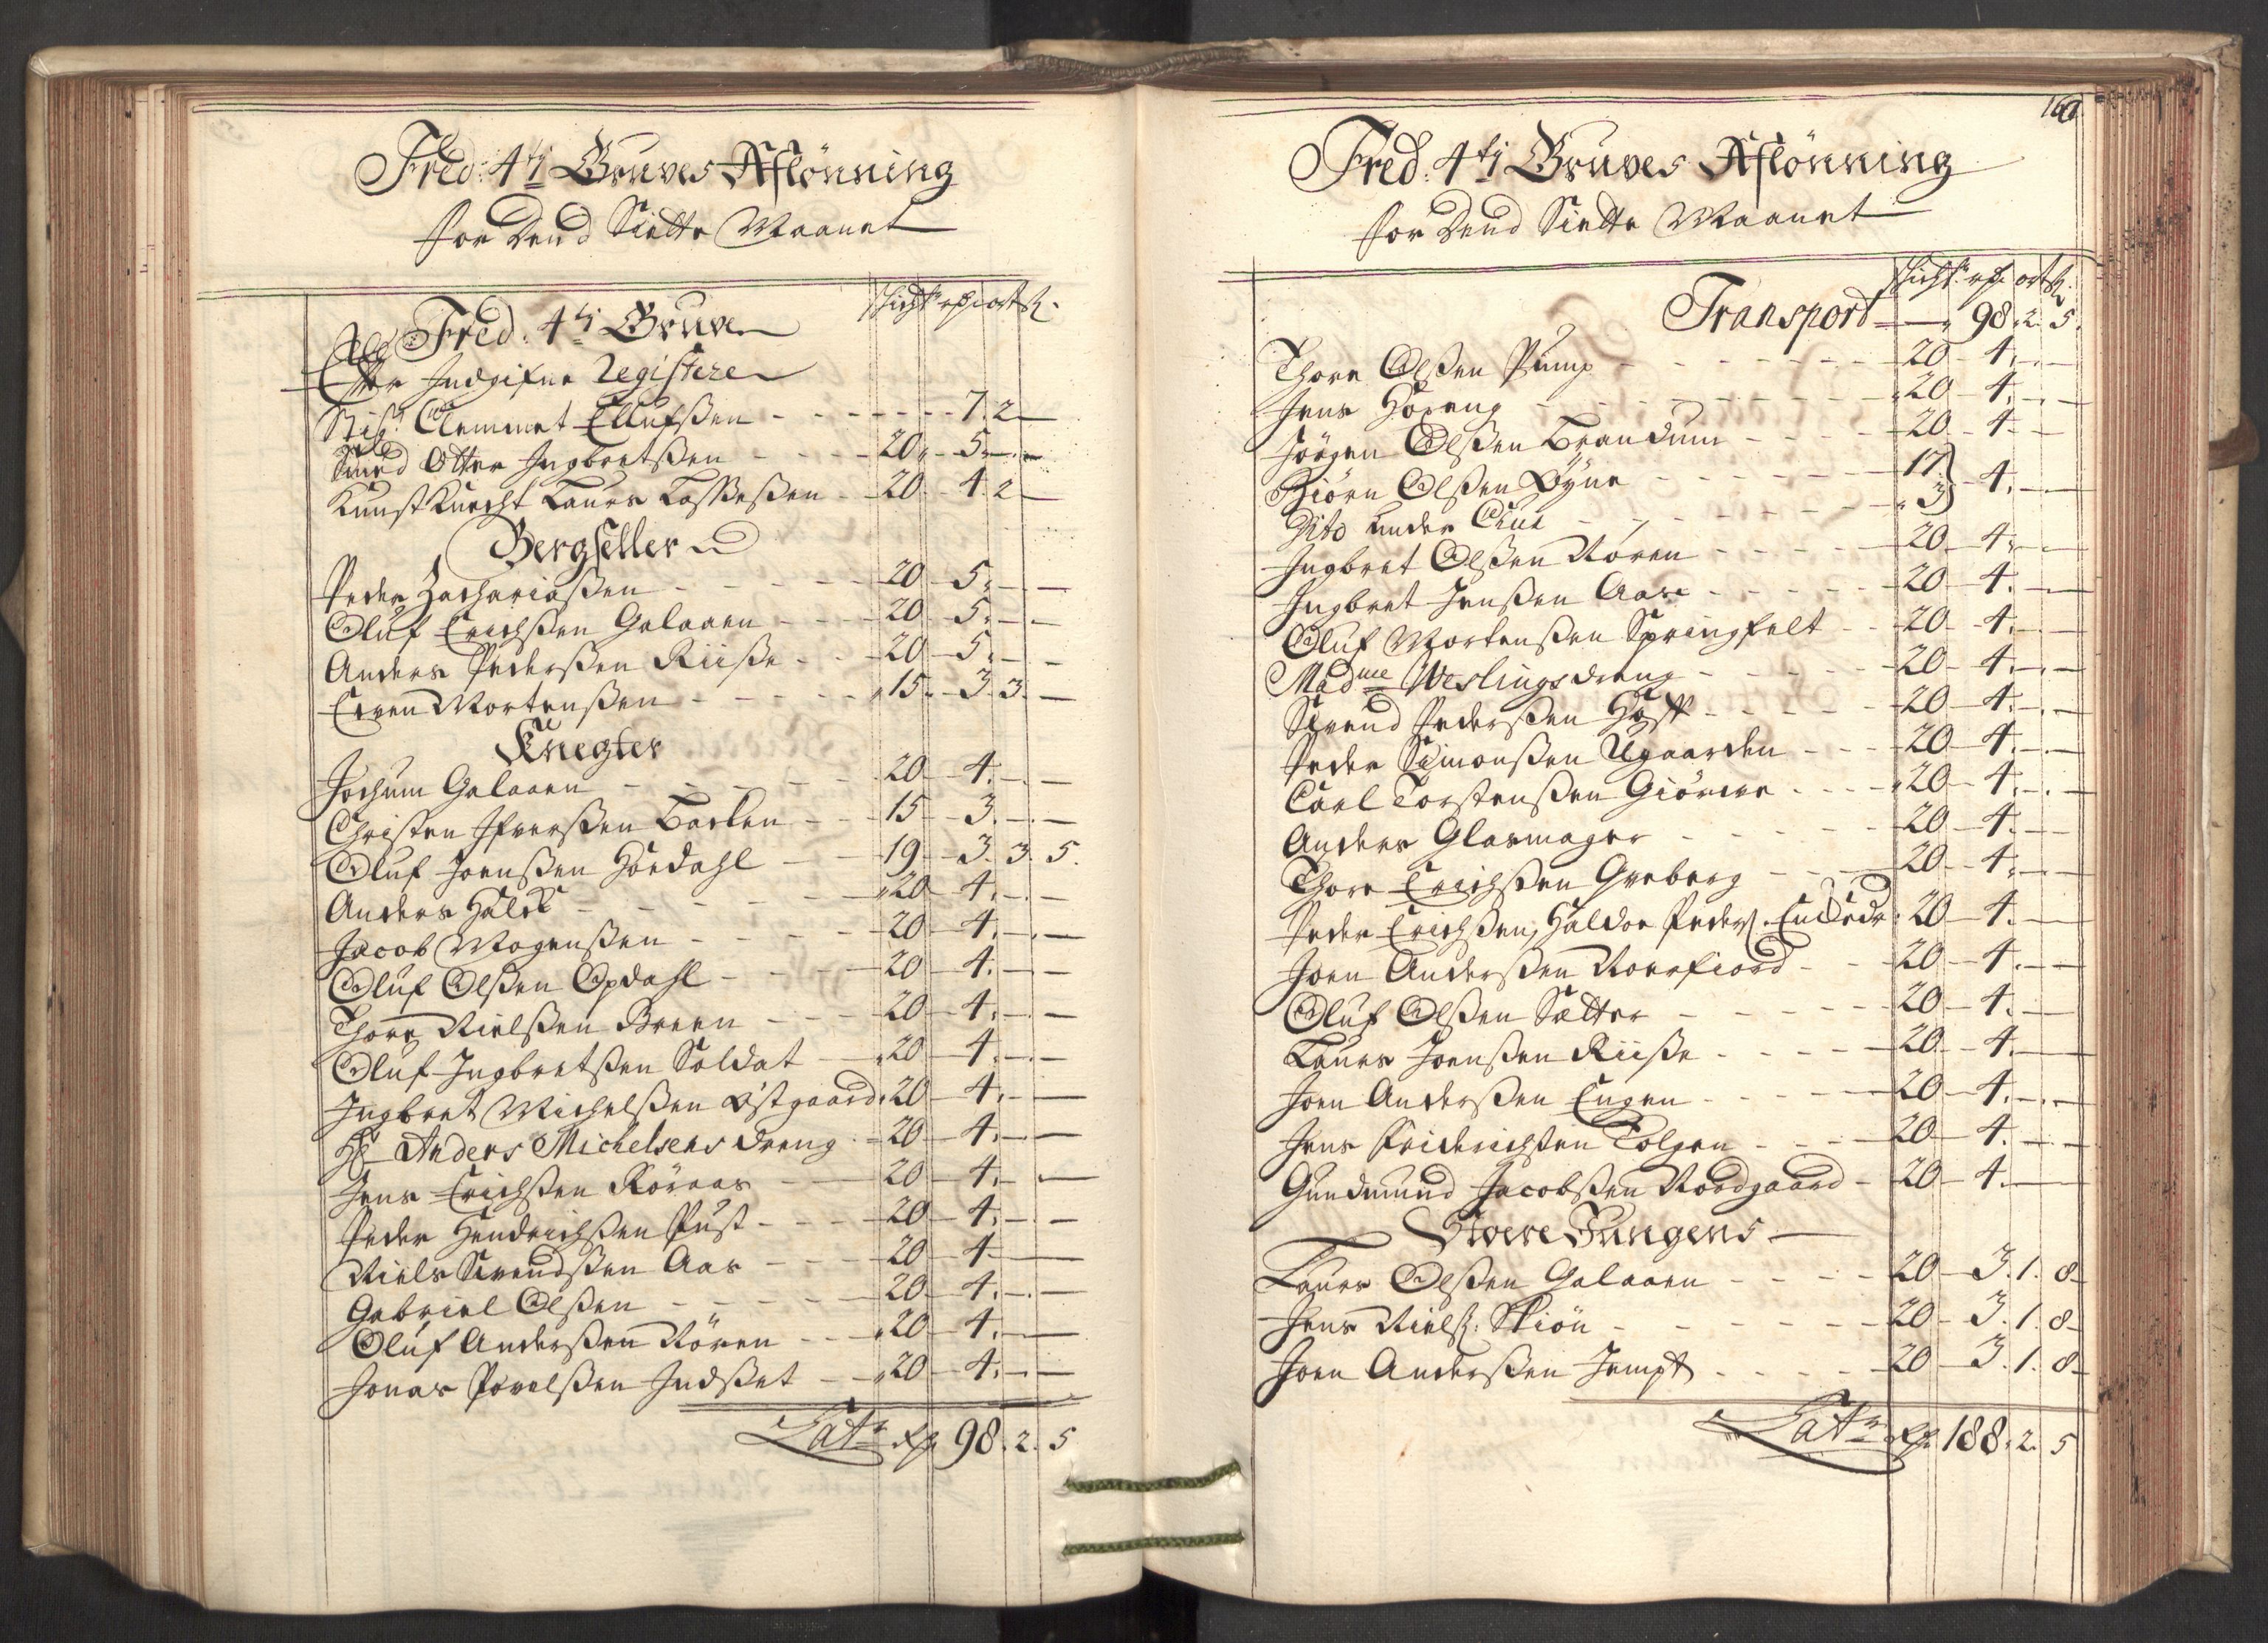 Fred: 4ti Gruves Aflönning
for Dend Siette Maanet
schicht rd ort ß
Fred: 4ti Gruve
Efter Indgifne Registere
Stig: Clemmet Ellufsen - 7. 2 -
Smed Otter Ingbretsen - 20 - 5 - -
Kunst Knecht Laurs Lassesen - 20 - 4. 2 -
Bergseller
Peder Zachariasen - 20 - 5 - -
Oluf Erichsen Galaaen - 20 - 5 - -
Anders Pedersen Riise - 20 - 5 - -
Even Mortensen - 15 - 3. 3. -
Knegter
Jochum Galaaen - 20 - 4 - -
Christen Ifversen Barken - 15 - 3 - -
Oluf Joensen Hordahl - 19 - 3. 3. 5.
Anders Halck - 20 - 4 - -
Jacob Mogensen - 20 - 4 - -
Oluf Olsen Opdahl - 20 - 4 - -
Thore Nielsen Breen - 20 - 4 - -
Oluf Ingbretsen Soldat - 20 - 4 - -
Ingbret Michelsen Østgaard 20 - 4 - -
Hr Anders Michelsens dreng - 20 - 4 - -
Jens Erichsen Röraas - 20 - 4 - -
Peder Hendrichsen Pust - 20 - 4 - -
Niels Svendsen Aas - 20 - 4 - -
Gabriel Olsen - 20 - 4 - -
Oluf Andersen Rören - 20 - 4 - -
Jonas Povelsen Indset - 20 - 4 - -
Lats rd 98. 2. 5
Fred: 4ti Gruves Aflönning
for Dend Siette Maanet
schicht rd ort ß
Transport - 98. 2. 5.
Thore Olsen Pump - 20 - 4 - -
Jens - 20 - 4 - -
Jörgen Olsen Brandum - 20 - 4 - -
Biörn Olsen Øyne - 17
Dito under - 3 - 4 - -
Ingbret Olsen Rören - 20 - 4 - -
Ingbret Jensen Aas - 20 - 4 - -
Oluf Mortensen Springfelt - 20 - 4 - -
Madme Weslings dreng - 20 - 4 - -
Svend Pedersen - 20 - 4 - -
Peder Simonsen Ugaarden - 20 - 4 - -
Carl Torstensen Giörere - 20 - 4 - -
Anders Glasmager - 20 - 4 - -
Thore Erichsen Greberg - 20 - 4 - -
Peder Erichsen, Haldor Peders: 20 - 4 - -
Joen Andersen Roerfiord - 20 - 4 - -
Oluf Olsen Sætter - 20 - 4 - -
Laurs Joensen Riise - 20 - 4 - -
Joen Andersen Engen - 20 - 4 - -
Jens Friderichsen Tolgen - 20 - 4 - -
Gundmund Jacobsen Nordgaard - 20 - 4 - -
Stoere Jungens
Laurs Olsen Galaaen - 20 - 3. 1. 8
Jens Niels: Skiön - 20 - 3. 1. 8
Joen Andersen Jempt - 20 - 3. 1. 8
Lats rd 188. 2. 5